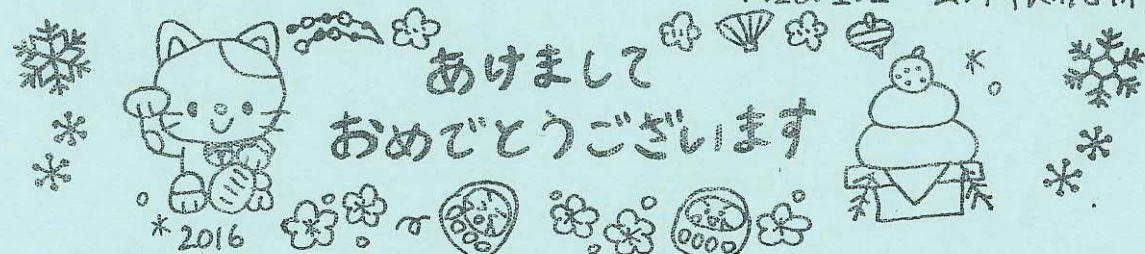 あけまして
おめでとうございます
2016